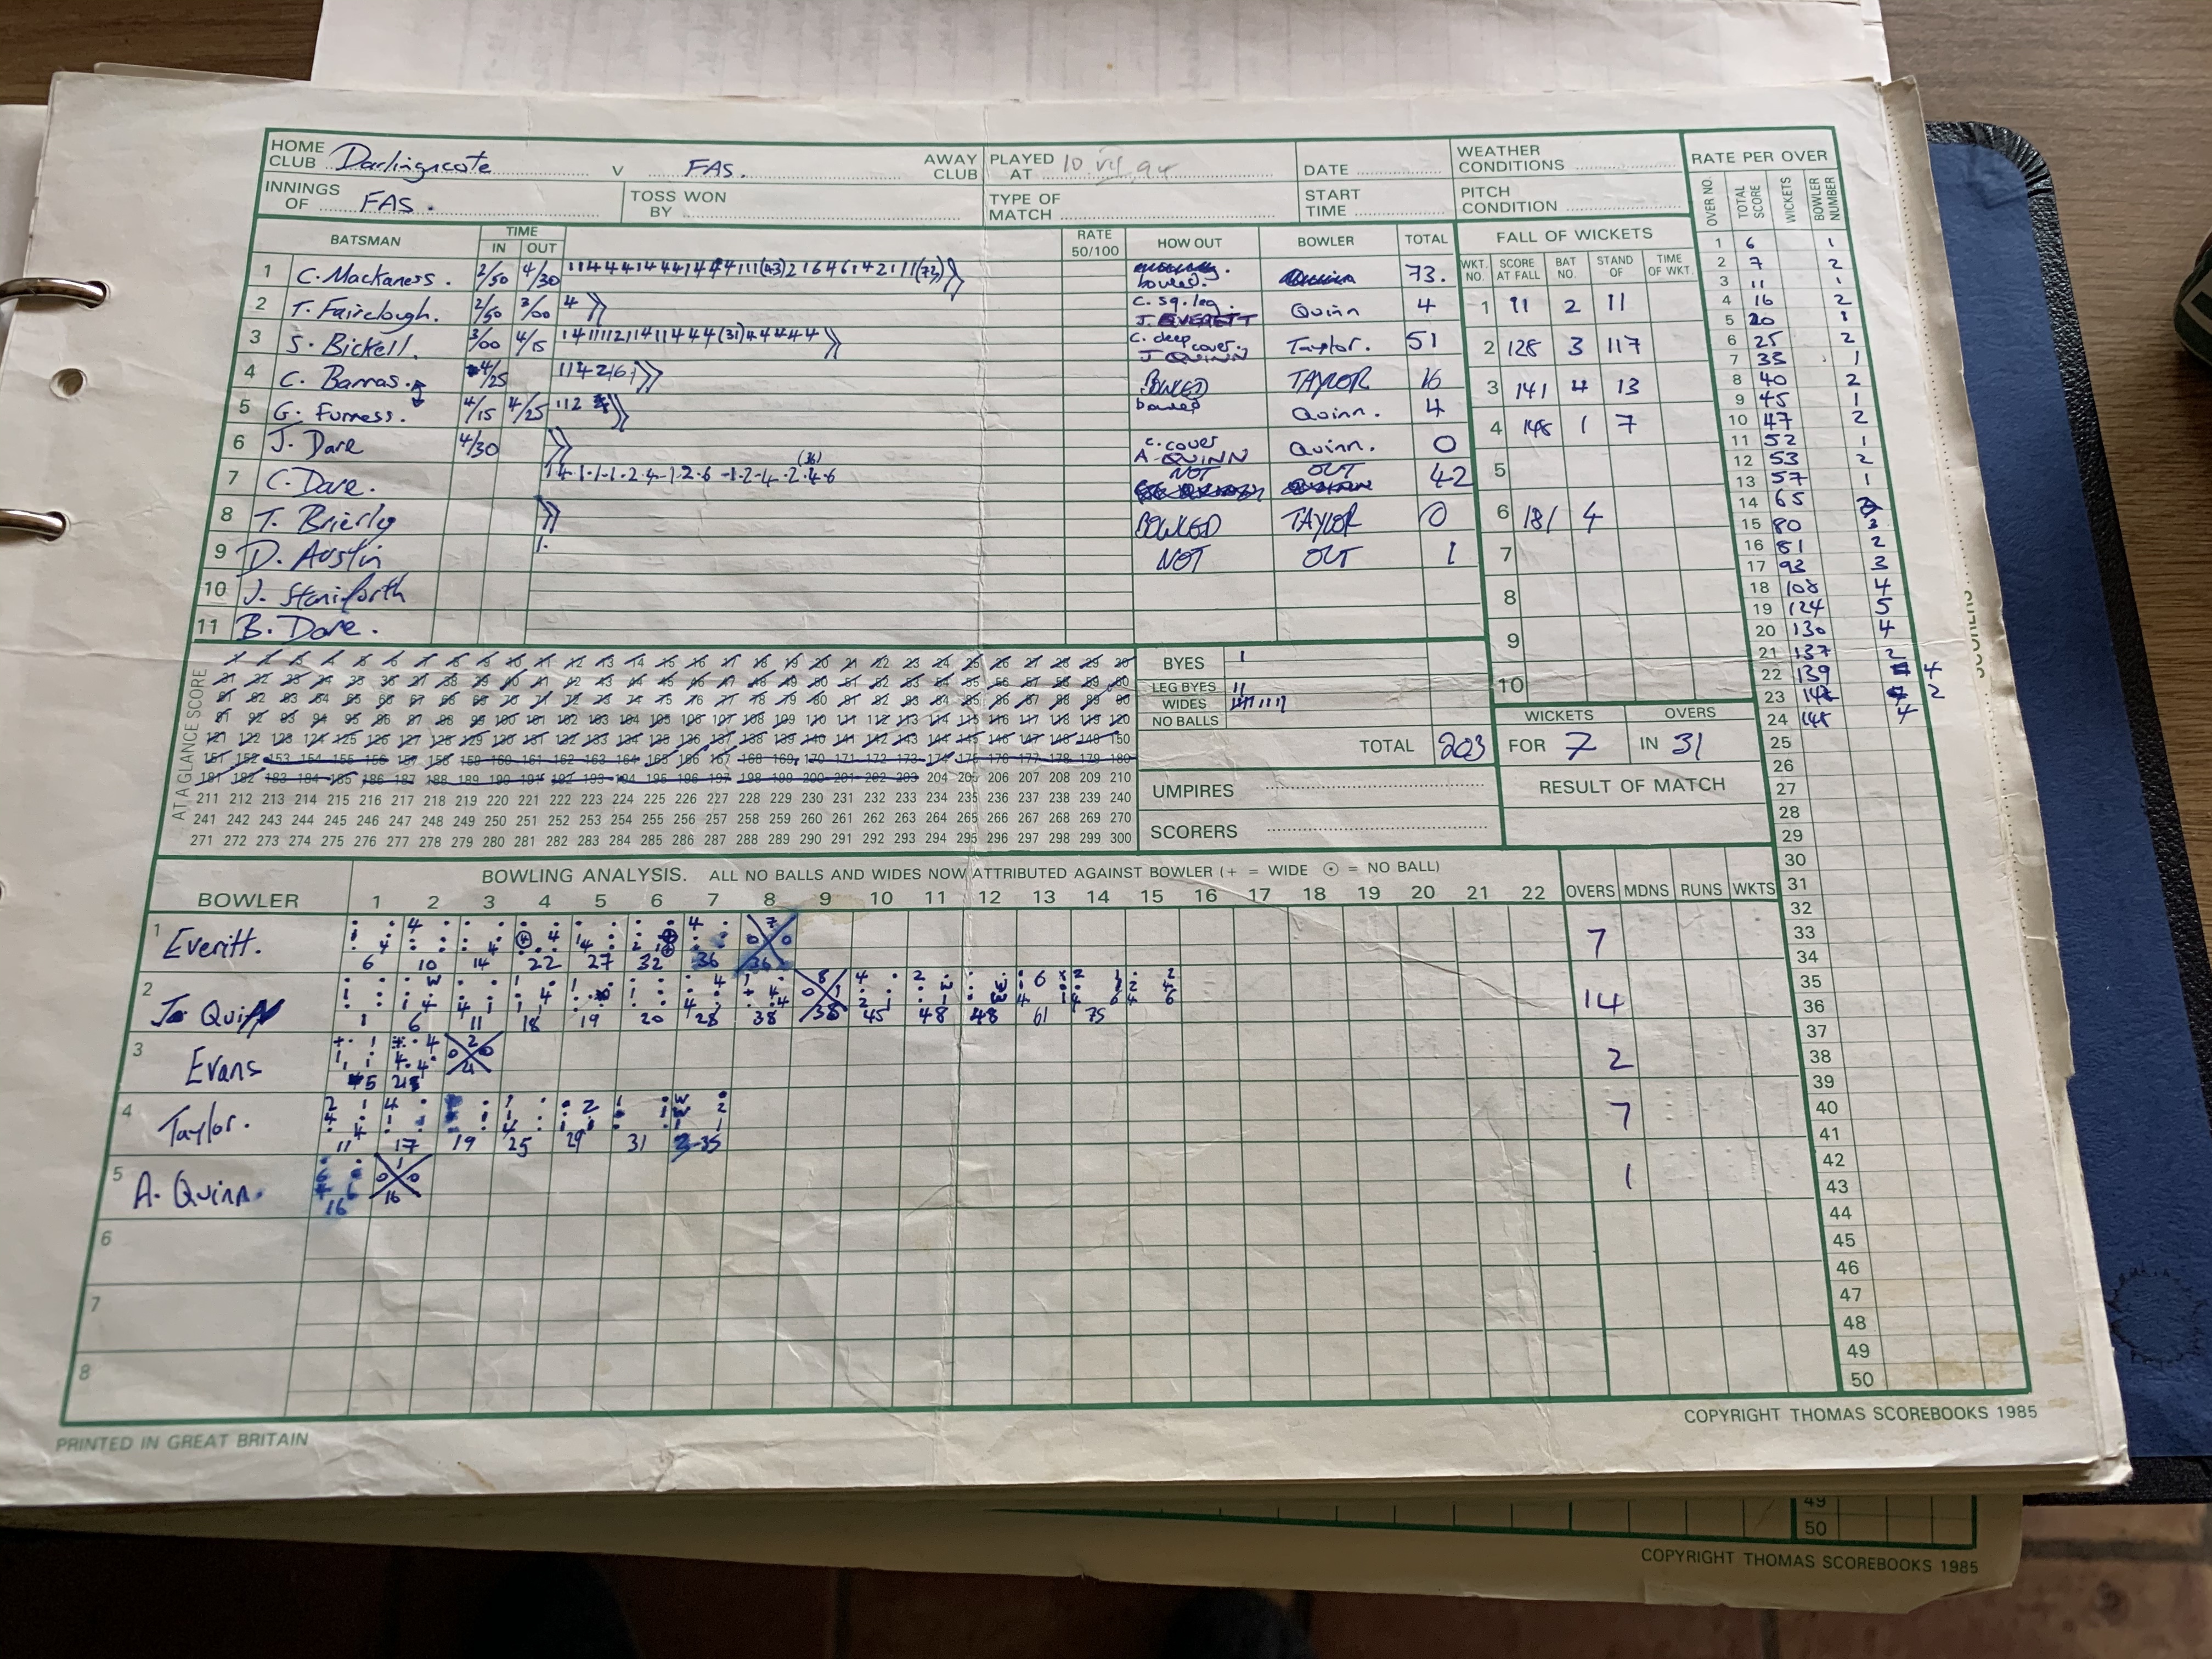 HOME CLUB Darlingscote v FAS. AWAY CLUB PLAYED AT 10 VII 94 DATE WEATHER CONDITIONS RATE PER OVER
INNINGS OF FAS. TOSS WON BY TYPE OF MATCH START TIME PITCH CONDITION
OVER NO. TOTAL SCORE WICKETS BOWLER NUMBER
BATSMAN TIME IN OUT RATE 50/100 HOW OUT BOWLER TOTAL FALL OF WICKETS
WKT. NO. SCORE AT FALL BAT NO. STAND OF TIME OF WKT.
1 C. Mackaness. 2/50 4/30 bowled. 73.
2 T. Fairclough. 2/50 3/00 4 c. sq. leg. J. EVERETT Quinn 4
3 S. Bickell. 3/00 4/15 c. deep cover. J. QUINN Taylor. 51
4 C. Barras. 4/25 BOWLED TAYLOR 16
5 G. Furness. 4/15 4/25 112 bowled Quinn. 4
6 J. Dare 4/30 c. cover A. QUINN Quinn. 0
7 C. Dare. (36) NOT OUT 42
8 T. Brierly BOWLED TAYLOR 0
9 D. Austin 1. NOT OUT 1
10 J. Staniforth
11 B. Dare.
1 11 2 11
2 128 3 117
3 141 4 13
4 148 1 7
5
6 181 4
7
8
9
10
1 6 1
2 7 2
3 11 1
4 16 2
5 20 1
6 25 2
7 33 1
8 40 2
9 45 1
10 47 2
11 52 1
12 53 2
13 57 1
14 65
15 80 3
16 81 2
17 93 3
18 108 4
19 124 5
20 130 4
21 137 2
22 139 4
23 2
24 148 4
25
26
27
28
29
30
31
32
33
34
35
36
37
38
39
40
41
42
43
44
45
46
47
48
49
50
AT A GLANCE SCORE
1 2 3 4 5 6 7 8 9 10 11 12 13 14 15 16 17 18 19 20 21 22 23 24 25 26 27 28 29 30
31 32 33 34 35 36 37 38 39 40 41 42 43 44 45 46 47 48 49 50 51 52 53 54 55 56 57 58 59 60
61 62 63 64 65 66 67 68 69 70 71 72 73 74 75 76 77 78 79 80 81 82 83 84 85 86 87 88 89 90
91 92 93 94 95 96 97 98 99 100 101 102 103 104 105 106 107 108 109 110 111 112 113 114 115 116 117 118 119 120
121 122 123 124 125 126 127 128 129 130 131 132 133 134 135 136 137 138 139 140 141 142 143 144 145 146 147 148 149 150
151 152 153 154 155 156 157 158 159 160 161 162 163 164 165 166 167 168 169 170 171 172 173 174 175 176 177 178 179 180
181 182 183 184 185 186 187 188 189 190 191 192 193 194 195 196 197 198 199 200 201 202 203 204 205 206 207 208 209 210
211 212 213 214 215 216 217 218 219 220 221 222 223 224 225 226 227 228 229 230 231 232 233 234 235 236 237 238 239 240
241 242 243 244 245 246 247 248 249 250 251 252 253 254 255 256 257 258 259 260 261 262 263 264 265 266 267 268 269 270
271 272 273 274 275 276 277 278 279 280 281 282 283 284 285 286 287 288 289 290 291 292 293 294 295 296 297 298 299 300
BYES 1
LEG BYES 11
WIDES
NO BALLS
TOTAL 203
WICKETS OVERS
FOR 7 IN 31
UMPIRES
SCORERS
RESULT OF MATCH
BOWLING ANALYSIS. ALL NO BALLS AND WIDES NOW ATTRIBUTED AGAINST BOWLER (+ = WIDE ⊙ = NO BALL)
BOWLER 1 2 3 4 5 6 7 8 9 10 11 12 13 14 15 16 17 18 19 20 21 22 OVERS MDNS RUNS WKTS
1 Everitt. 6 10 14 22 27 32 36 36 7
2 Quinn 1 6 11 18 19 20 28 38 38 45 48 48 61 75 14
3 Evans 2
4 Taylor. 11 17 19 25 29 31 35 7
5 A. Quinn. 16 16 1
6
7
8
PRINTED IN GREAT BRITAIN
COPYRIGHT THOMAS SCOREBOOKS 1985
49
50
COPYRIGHT THOMAS SCOREBOOKS 1985